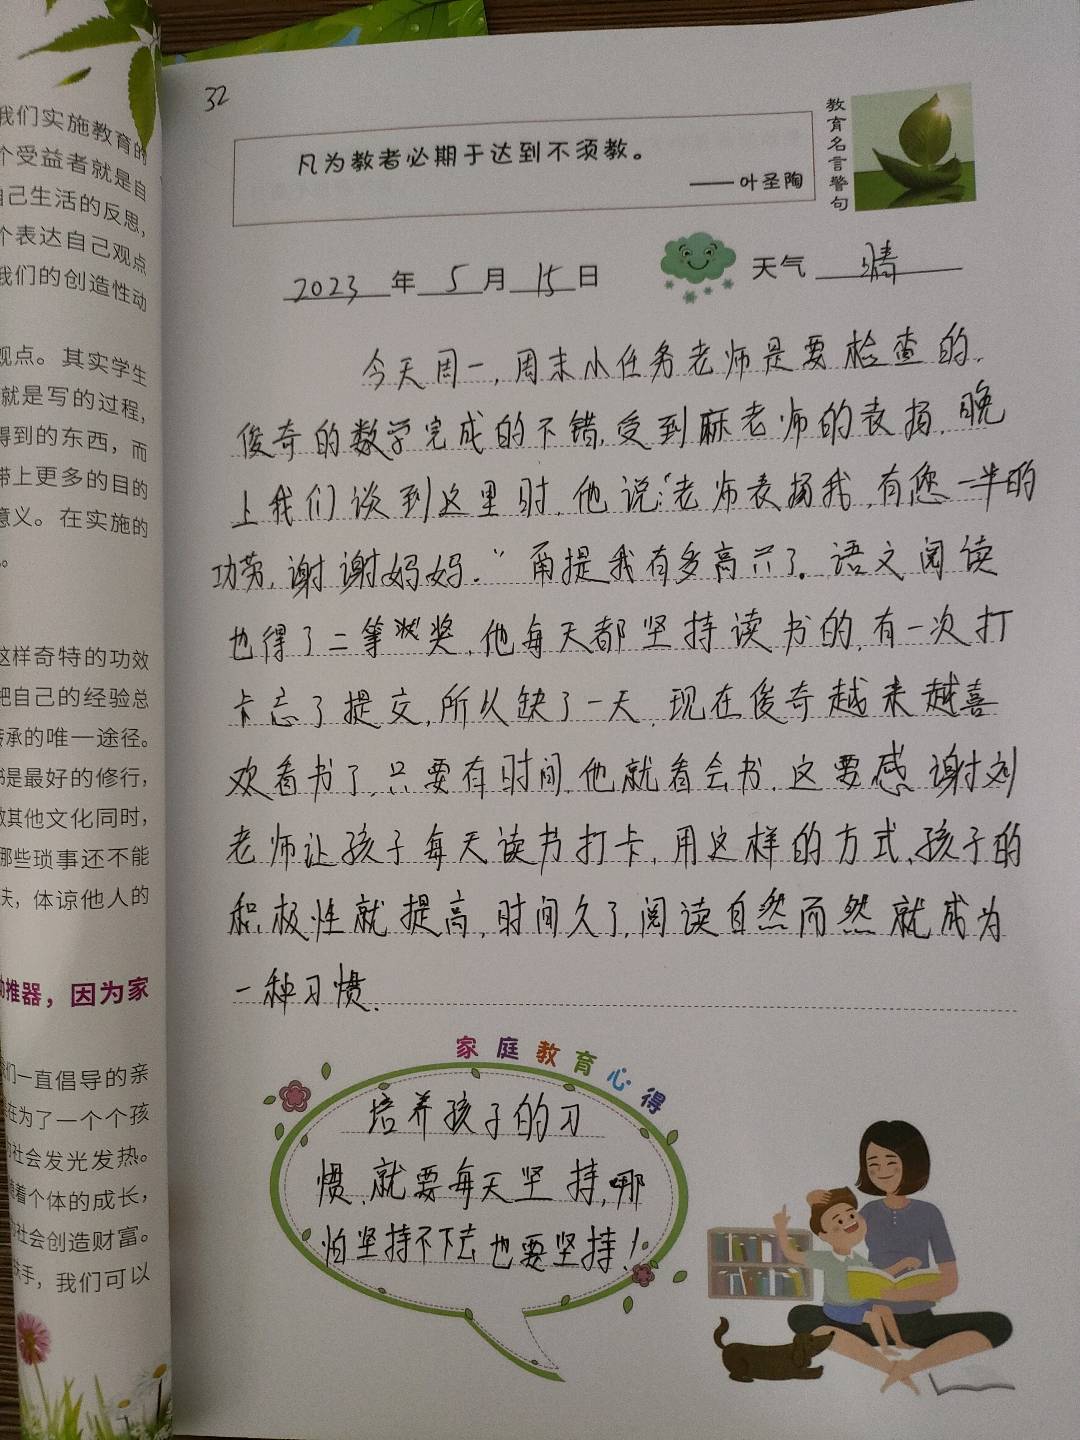 我们实施教育的
个受益者就是自
自己生活的反思，
个表达自己观点
我们的创造性动
观点。其实学生
就是写的过程，
得到的东西，而
带上更多的目的
意义。在实施的
。
这样奇特的功效
把自己的经验总
传承的唯一途径。
书是最好的修行，
做其他文化同时，
哪些琐事还不能
夫，体谅他人的
助推器，因为家
我们一直倡导的亲
在为了一个个孩
社会发光发热。
着个体的成长，
社会创造财富。
扶手，我们可以
32
凡为教者必期于达到不须教。
——叶圣陶
教育名言警句
2023年5月15日
天气 晴
今天周一，周末小任务老师是要检查的，
俊奇的数学完成的不错，受到麻老师的表扬，晚
上我们谈到这里时，他说："老师表扬我，有您一半的
功劳，谢谢妈妈。"甭提我有多高兴了。语文阅读
也得了二等奖，他每天都坚持读书的，有一次打
卡忘了提交，所以缺了一天，现在俊奇越来越喜
欢看书了，只要有时间，他就看会书，这要感谢刘
老师让孩子每天读书打卡，用这样的方式，孩子的
积极性就提高，时间久了，阅读自然而然就成为
一种习惯。
家庭教育心得
培养孩子的习
惯，就要每天坚持，哪
怕坚持不下去也要坚持！